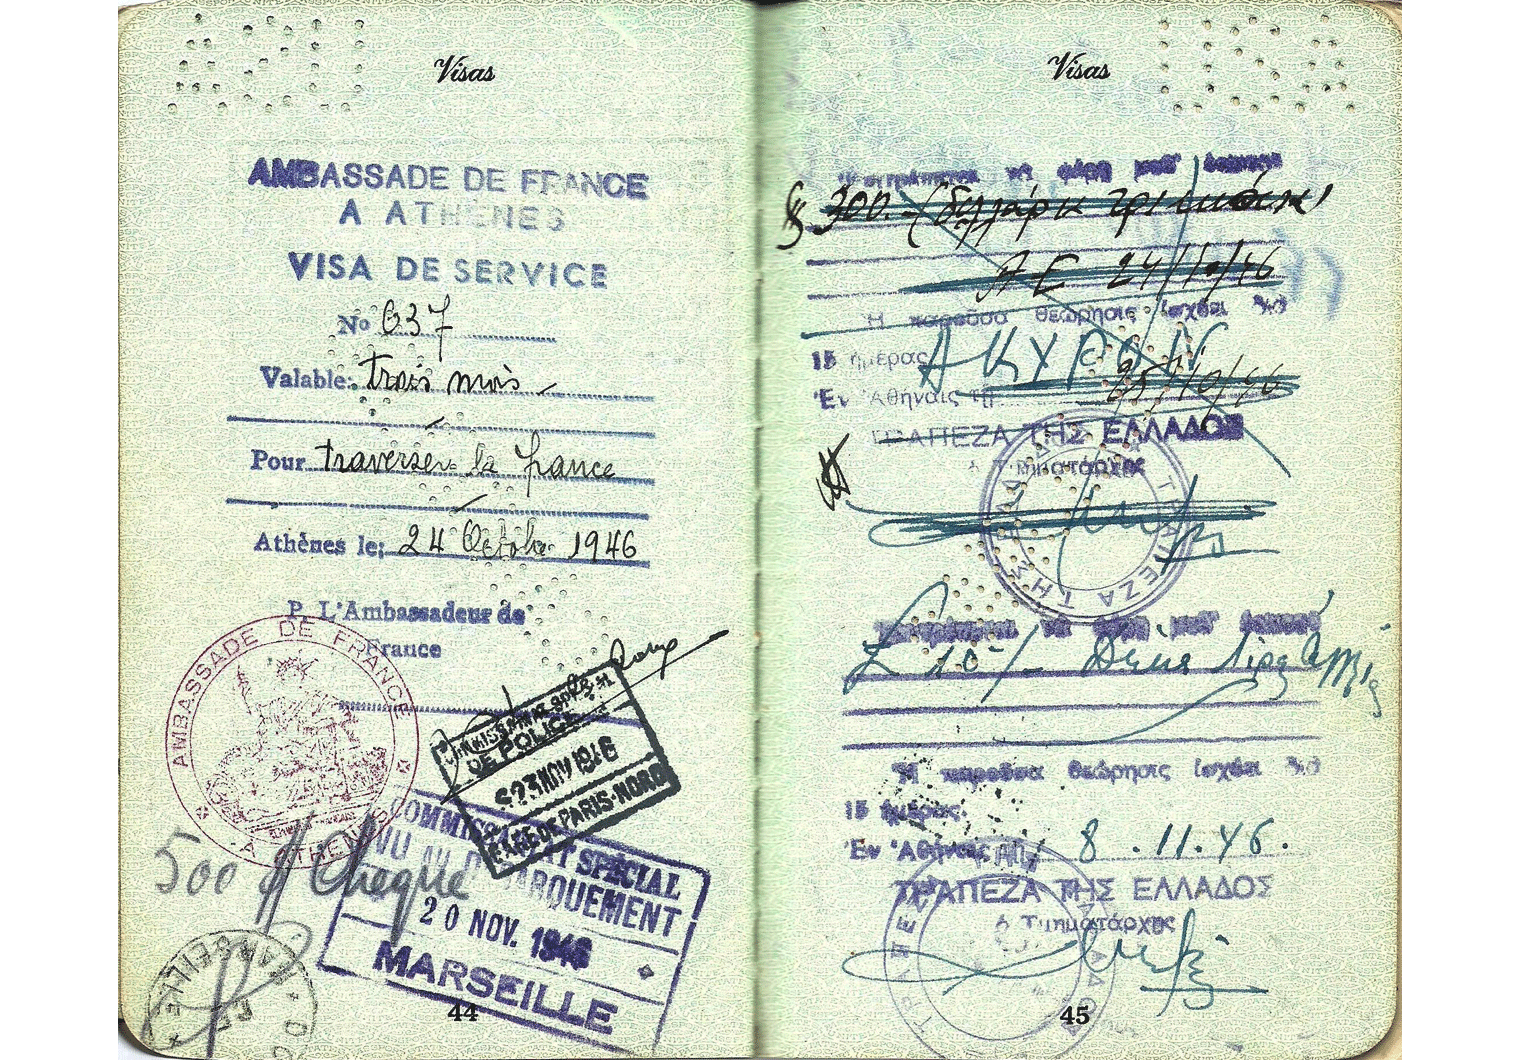 Visas
AMBASSADE DE FRANCE
A ATHÈNES
VISA DE SERVICE
No 637
Valable: trois mois
Pour traverser la france
Athènes le: 24 Octobre 1946
P. L'Ambassadeur de
France
AMBASSADE DE FRANCE
A ATHÈNES
DE POLICE
23 NOV 1946
GARE DE PARIS-NORD
500 Cheque
COMMISSARIAT SPÉCIAL
VU AU DÉBARQUEMENT
20 NOV. 1946
MARSEILLE
MARSEILLE
44
Visas
USA
Ἐπιτρέπεται νὰ φέρῃ μεθ' ἑαυτοῦ
$ 300.- (δολλάρια τριακόσια)
24/10/46
Ἡ παροῦσα θεώρησις ἰσχύει διὰ
15 ἡμέρας
ΑΚΥΡΟΝ
Ἐν Ἀθήναις τῇ 25/10/46
ΤΡΑΠΕΖΑ ΤΗΣ ΕΛΛΑΔΟΣ
ὁ Τμηματάρχης
ΤΡΑΠΕΖΑ ΤΗΣ
Ἐπιτρέπεται νὰ φέρῃ μεθ' ἑαυτοῦ
£ 10/- Δέκα λίρες
Ἡ παροῦσα θεώρησις ἰσχύει διὰ
15 ἡμέρας.
Ἐν Ἀθήναις τῇ 8.11.46.
ΤΡΑΠΕΖΑ ΤΗΣ ΕΛΛΑΔΟΣ
ὁ Τμηματάρχης
45